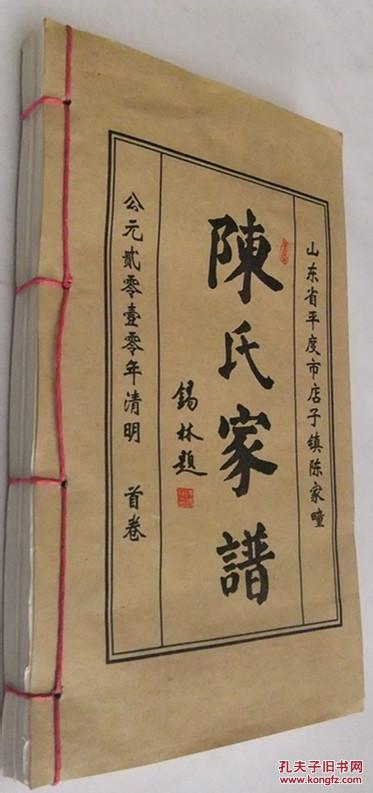 山东省平度市店子镇陈家疃
陳氏家譜
錫林题
公元貳零壹零年清明 首卷
孔夫子旧书网